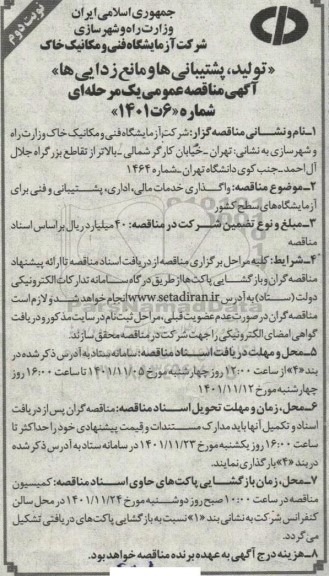 نوبت دوم
جمهوری اسلامی ایران
وزارت راه و شهرسازی
شرکت آزمایشگاه فنی و مکانیک خاک
«تولید، پشتیبانی‌ها و مانع زدایی‌ها»
آگهی مناقصه عمومی یک مرحله‌ای
شماره «۶ت۱۴۰۱»
۱-نام و نشانی مناقصه گزار: شرکت آزمایشگاه فنی و مکانیک خاک وزارت راه
و شهرسازی به نشانی: تهران -خیابان کارگر شمالی -بالاتر از تقاطع بزرگراه جلال
آل احمد-جنب کوی دانشگاه تهران -شماره ۱۴۶۴
۲-موضوع مناقصه: واگذاری خدمات مالی، اداری، پشتیبانی و فنی برای
آزمایشگاه‌های سطح کشور
۳-مبلغ و نوع تضمین شرکت در مناقصه: ۴۰ میلیارد ریال بر اساس اسناد
مناقصه
۴-شرایط: کلیه مراحل برگزاری مناقصه از دریافت اسناد مناقصه تا ارائه پیشنهاد
مناقصه گران و بازگشایی پاکت‌ها از طریق درگاه سامانه تدارکات الکترونیکی
دولت (ستاد) به آدرس www.setadiran.ir انجام خواهد شد و لازم است
مناقصه گران در صورت عدم عضویت قبلی، مراحل ثبت نام در سایت مذکور و دریافت
گواهی امضای الکترونیکی را جهت شرکت در مناقصه محقق سازند
۵-محل و مهلت دریافت اسناد مناقصه: سامانه ستاد به آدرس ذکر شده در
بند «۴» از ساعت ۱۲:۰۰ روز چهارشنبه مورخ ۱۴۰۱/۱۱/۰۵ تا ساعت ۱۶:۰۰ روز
چهارشنبه مورخ ۱۴۰۱/۱۱/۱۲
۶-محل، زمان و مهلت تحویل اسناد مناقصه: مناقصه گران پس از دریافت
اسناد و تکمیل آنها باید مدارک مستندات و قیمت پیشنهادی خود را حداکثر تا
ساعت ۱۶:۰۰ روز یکشنبه مورخ ۱۴۰۱/۱۱/۲۳ در سامانه ستاد به آدرس ذکر شده
در بند «۴» بارگذاری نمایند.
۷-محل، زمان بازگشایی پاکت‌های حاوی اسناد مناقصه: کمیسیون
مناقصه در ساعت ۱۰:۰۰ صبح روز دوشنبه مورخ ۱۴۰۱/۱۱/۲۴ در محل سالن
کنفرانس شرکت به نشانی بند «۱» نسبت به بازگشایی پاکت‌های دریافتی تشکیل
می گردد.
۸-هزینه درج آگهی به عهده برنده مناقصه خواهد بود.